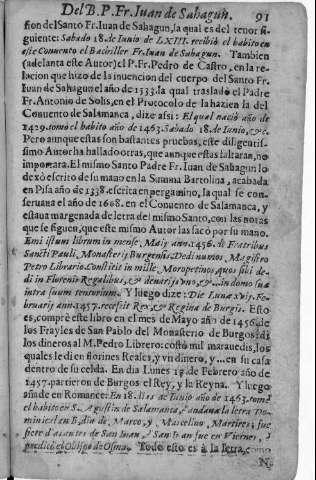 Del B. P. Fr. Iuan de Sahagun. 91
sion del Santo Fr. Iuan de Sahagun, la qual es del tenor si-
guiente: Sabado 18. de Iunio de LXIII. recibiò el habito en
este Conuento el Bachiller Fr. Iuan de Sahagun. Tambien
(adelanta este Autor) el P. Fr. Pedro de Castro, en la re-
lacion que hizo de la inuencion del cuerpo del Santo Fr.
Iuan de Sahagun el año de 1533. la qual trasladò el Padre
Fr. Antonio de Solis, en el Protocolo de la hazienda del
Conuento de Salamanca, dize assi: El qual naciò año de
1429. tomò el habito año de 1463. Sabado 18. de Iunio, &c.
Pero aunque estas son bastantes prueuas, este diligentis-
simo Autor ha hallado otras, que aunque estas faltaran, no
importara. El mismo Santo Padre Fr. Iuan de Sahagun lo
dexò escrito de su mano en la Summa Bartolina, acabada
en Pisa año de 1338. escrita en pergamino, la qual se con-
seruaua el año de 1608. en el Conuento de Salamanca, y
estaua margenada de letra del mismo Santo, con las notas
que se siguen, que este mismo Autor las sacò por su mano.
Emi istum librum in mense, Maij anno 1456. à Fratribus
Sancti Pauli, Monasterij Burgensis. Dedi numos, Magistro
Petro Librario. Constitit in mille, Moropetinos, quos sibi de-
di in Florenis Regalibus, & denarijs vno, &... in domo sua
intra suum tentorium. Y luego dize: Die Lunæ xvij. Fe-
bruarij anno 1457. recessit Rex, & Regina de Burgis. Esto
es, comprè este libro en el mes de Mayo año de 1456. de
los Frayles de San Pablo del Monasterio de Burgos: dì
los dineros al M. Pedro Librero: costò mil marauedis, los
quales le dì en florines Reales, y vn dinero, y... en su casa
dentro de su celda. En dia Lunes 17. de Febrero año de
1457. partieron de Burgos el Rey, y la Reyna. Y luego
añade en Romance: En 18. dias de Iunio año de 1463. tomè
el habito en S. Agustin de Salamanca, & andaua la letra Do-
minical en B, dia de, Marco, y Marcelino, Martires, fue
 de San Iuan, & San Iuan fue en Viernes, &
predicò el Obispo de Osma. Todo esto es à la letra, como
N